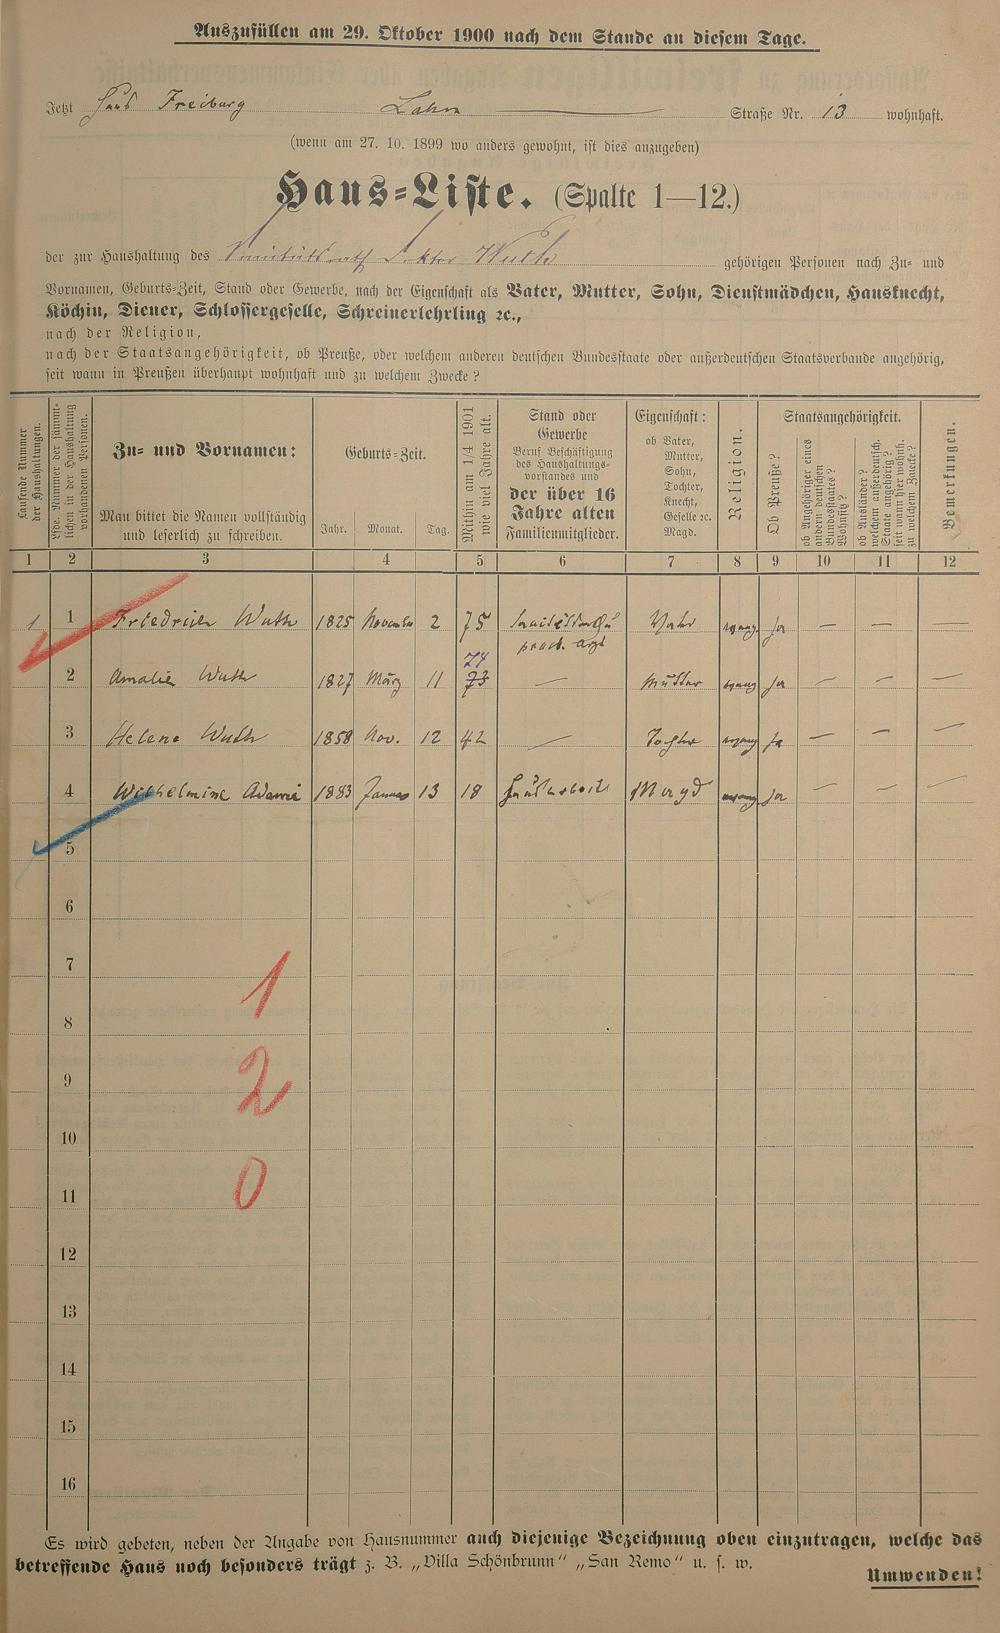 Auszufüllen am 29. Oktober 1900 nach dem Stande an diesem Tage.
Jetzt Haus Freiburg Lahn Straße Nr. 13 wohnhaft.
(wenn am 27. 10. 1899 wo anders gewohnt, ist dies anzugeben)
Haus-Liste. (Spalte 1—12.)
der zur Haushaltung des Sanitätsrath Doktor Wuth gehörigen Personen nach Zu- und
Vornamen, Geburts-Zeit, Stand oder Gewerbe, nach der Eigenschaft als Vater, Mutter, Sohn, Dienstmädchen, Hausknecht,
Köchin, Diener, Schlossergeselle, Schreinerlehrling ꝛc.,
nach der Religion,
nach der Staatsangehörigkeit, ob Preuße, oder welchem anderen deutschen Bundesstaate oder außerdeutschen Staatsverbande angehörig,
seit wann in Preußen überhaupt wohnhaft und zu welchem Zwecke?
Laufende Nummer der Haushaltungen.
Lfde. Nummer der sämmtlichen in der Haushaltung vorhandenen Personen.
Zu- und Vornamen:
Man bittet die Namen vollständig
und leserlich zu schreiben.
Geburts-Zeit.
Jahr. Monat. Tag.
Mithin am 1/4 1901 wie viel Jahre alt.
Stand oder
Gewerbe
Beruf Beschäftigung
des Haushaltungs-
vorstandes und
der über 16
Jahre alten
Familienmitglieder.
Eigenschaft:
ob Vater,
Mutter,
Sohn,
Tochter,
Knecht,
Geselle ꝛc.
Magd.
Religion.
Staatsangehörigkeit.
Ob Preuße?
ob Angehöriger eines andern deutschen Bundesstaates? Wohnsitz?
ob Ausländer? welchem außerdeutsch. Staate angehörig? seit wann hier wohnh. zu welchem Zwecke?
Bemerkungen.
1 2 3 4 5 6 7 8 9 10 11 12
1 1 Friedrich Wuth 1825 November 2 75 Vater evang. ja — — —
pract. Arzt
74
2 Amalie Wuth 1827 März 11 73 — Mutter evang ja — — —
3 Helene Wuth 1858 Nov. 12 42 — Tochter evang ja — — —
4 Wilhelmine Adami 1883 Januar 13 18 Hausarbeit Magd evang ja — — —
5
6
7
1
8
9
2
10
11
0
12
13
14
15
16
Es wird gebeten, neben der Angabe von Hausnummer auch diejenige Bezeichnung oben einzutragen, welche das
betreffende Haus noch besonders trägt z. B. „Villa Schönbrunn“ „San Remo“ u. s. w.
Umwenden!